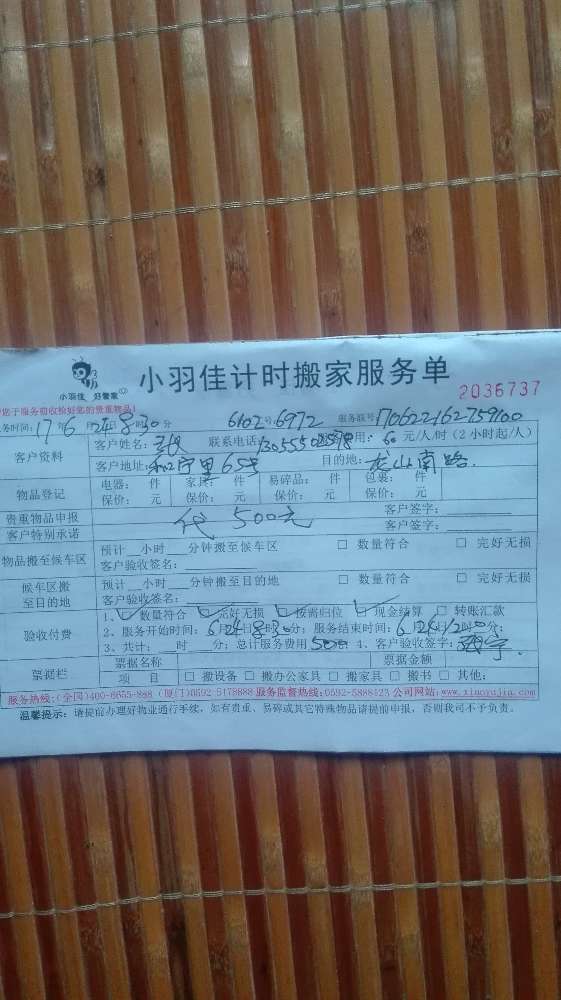 小羽佳 好管家
小羽佳计时搬家服务单
2036737
务时间：17年6月24日8时30分 6102号6972 服务联号
客户资料
客户姓名： 联系电话： 用：60元/人/时（2小时起/人）
客户地址： 里65号 目的地：龙山南路
物品登记
电器： 件 家具： 件 易碎品： 件 包裹： 件
保价： 元 保价： 元 保价： 元 保价： 元
贵重物品申报 客户签字：
客户特别承诺 代 500元 客户签字：
物品搬至候车区
预计__小时__分钟搬至候车区 □ 数量符合 □ 完好无损
客户验收签名：
候车区搬至目的地
预计__小时__分钟搬至目的地 □ 数量符合 □ 完好无损
客户验收签名：
验收付费
1、☑数量符合 ☑完好无损 ☑按需归位 ☑现金结算 □ 转账汇款
2、服务开始时间：6月24日8时30分；服务结束时间：6月24日12时 分；
3、共计： 时 分；总计服务费用500元 4、客户验收签字：
票据栏
票据名称 票据金额
项 目 □ 搬设备 □ 搬办公家具 □ 搬家具 □ 搬书 □ 其他：
服务热线：(全国)400-6655-888 (厦门)0592-5178888 服务监督热线：0592-5888123 公司网站：www.xiaoyujia.com
温馨提示：请提前办理好物业通行手续，如有贵重、易碎或其它特殊物品请提前申报，否则我司不予负责。